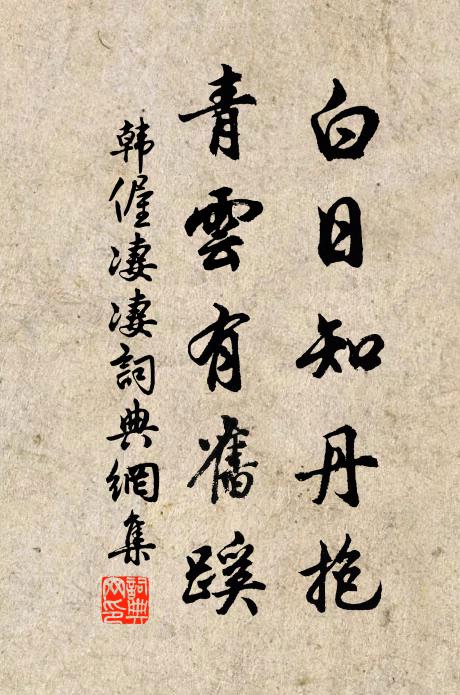 白日知丹抱
青雲有舊蹊
韩偓凄凄詞典網集
詞典網印